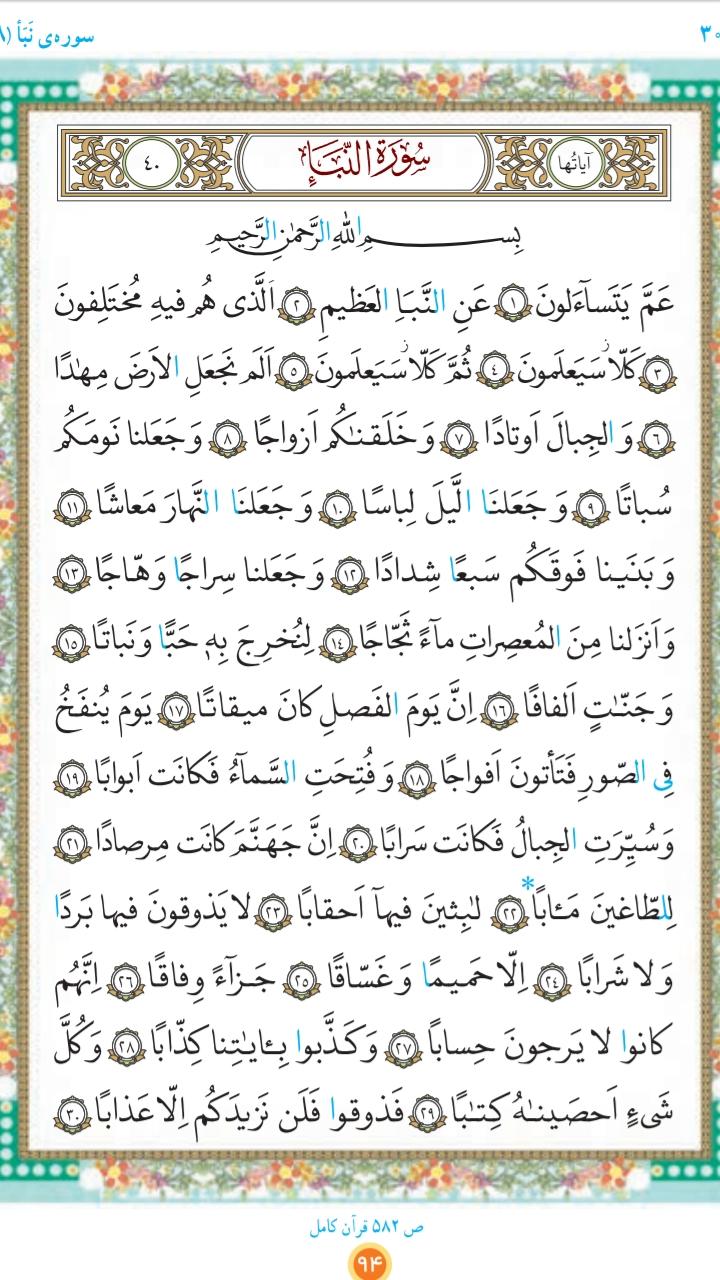 ۳۰ سوره‌ی نَبَأ (
آیاتُها سُورَةُ النَّبَإِ ٤٠
بِسـمِ اللهِ الرَّحمٰنِ الرَّحيمِ
عَمَّ يَتَساءَلونَ ﴿١﴾ عَنِ النَّبَاِ العَظيمِ ﴿٢﴾ اَلَّذى هُم فيهِ مُختَلِفونَ
﴿٣﴾ كَلّا سَيَعلَمونَ ﴿٤﴾ ثُمَّ كَلّا سَيَعلَمونَ ﴿٥﴾ اَلَم نَجعَلِ الاَرضَ مِهٰدًا
﴿٦﴾ وَ الجِبالَ اَوتادًا ﴿٧﴾ وَ خَلَقنٰكُم اَزواجًا ﴿٨﴾ وَ جَعَلنا نَومَكُم
سُباتًا ﴿٩﴾ وَ جَعَلنَا الَّيلَ لِباسًا ﴿١٠﴾ وَ جَعَلنَا النَّهارَ مَعاشًا ﴿١١﴾
وَ بَنَينا فَوقَكُم سَبعًا شِدادًا ﴿١٢﴾ وَ جَعَلنا سِراجًا وَهّاجًا ﴿١٣﴾
وَ اَنزَلنا مِنَ المُعصِراتِ مآءً ثَجّاجًا ﴿١٤﴾ لِنُخرِجَ بِهٖ حَبًّا وَ نَباتًا ﴿١٥﴾
وَ جَنّٰتٍ اَلفافًا ﴿١٦﴾ اِنَّ يَومَ الفَصلِ كانَ ميقاتًا ﴿١٧﴾ يَومَ يُنفَخُ
فِى الصّورِ فَتَأتونَ اَفواجًا ﴿١٨﴾ وَ فُتِحَتِ السَّمآءُ فَكانَت اَبوابًا ﴿١٩﴾
وَ سُيِّرَتِ الجِبالُ فَكانَت سَرابًا ﴿٢٠﴾ اِنَّ جَهَنَّمَ كانَت مِرصادًا ﴿٢١﴾
لِلطّاغينَ مَـٔابًا* ﴿٢٢﴾ لٰبِثينَ فيهآ اَحقابًا ﴿٢٣﴾ لا يَذوقونَ فيها بَردًا
وَ لا شَرابًا ﴿٢٤﴾ اِلّا حَميمًا وَ غَسّاقًا ﴿٢٥﴾ جَزآءً وِفاقًا ﴿٢٦﴾ اِنَّهُم
كانوا لا يَرجونَ حِسابًا ﴿٢٧﴾ وَ كَذَّبوا بِـٔايٰتِنا كِذّابًا ﴿٢٨﴾ وَ كُلَّ
شَىءٍ اَحصَينٰهُ كِتٰبًا ﴿٢٩﴾ فَذوقوا فَلَن نَزيدَكُم اِلّا عَذابًا ﴿٣٠﴾
ص ۵۸۲ قرآن کامل
۹۴